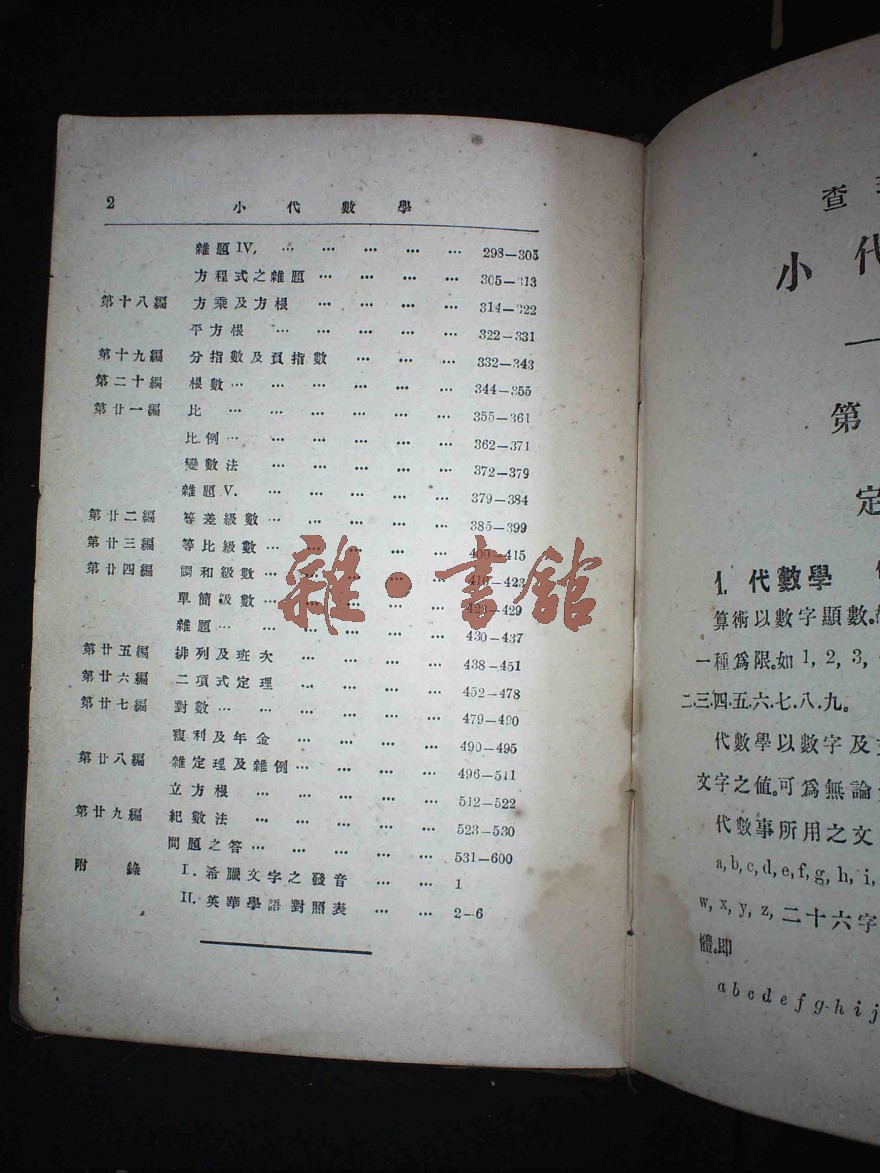 2 小代數學
雜題 IV, … … … … … 298—305
方程式之雜題 … … … … 305—313
第十八編 方乘及方根 … … … … 314—322
平方根 … … … … … 322—331
第十九編 分指數及負指數 … … … 332—343
第二十編 根數 … … … … … 344—355
第廿一編 比 … … … … … … 355—361
比例 … … … … … … 362—371
變數法 … … … … … 372—379
雜題 V. … … … … … 379—384
第廿二編 等差級數 … … … … … 385—399
第廿三編 等比級數 … … … … … 400—415
第廿四編 調和級數 … … … … … 416—423
單簡級數 … … … … … 423—429
雜題 … … … … … … 430—437
第廿五編 排列及班次 … … … … 438—451
第廿六編 二項式定理 … … … … 452—478
第廿七編 對數 … … … … … … 479—490
複利及年金 … … … … 490—495
第廿八編 雜定理及雜例 … … … … 496—511
立方根 … … … … … 512—522
第廿九編 紀數法 … … … … … 523—530
問題之答 … … … … … 531—600
附錄 I. 希臘文字之發音 … … 1
II. 英華學語對照表 … … 2-6
雜·書館
查
小代
第
定
1. 代數學
算術以數字顯數。
一種爲限。如 1, 2, 3,
二.三.四.五.六.七.八.九。
代數學以數字及
文字之值。可爲無論
代數事所用之文
a, b, c, d, e, f, g, h, i,
w, x, y, z, 二十六字
體。卽
a b c d e f g h i j